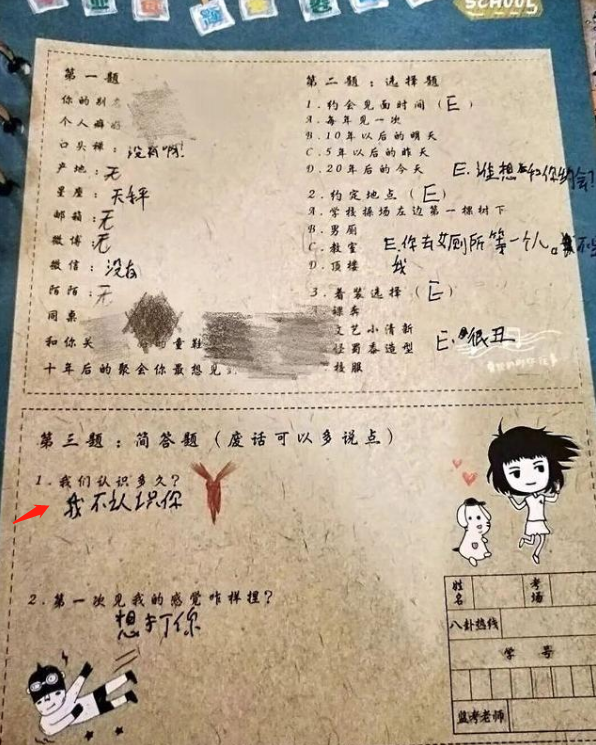 SCHOOL
第一题
你的别名
个人癖好
口头禅：没有啊!
产地：无
星座：天秤
邮箱：无
微博：无
微信：没有
陌陌：无
同桌
和你关 的童鞋
十年后的聚会你最想见到
第二题：选择题
1.约会见面时间（E）
A.每年见一次
B.10年以后的明天
C.5年以后的昨天
D.20年后的今天
E.谁想和你约会?
2.约定地点（E）
A.学校操场左边第一棵树下
B.男厕
C.教室
D.顶楼
E.你去女厕所第一个人。
我
3.着装选择（E）
裸奔
文艺小清新
怪蜀黍造型
校服
E.很丑
第三题：简答题（废话可以多说点）
1.我们认识多久?
我不认识你
2.第一次见我的感觉咋样捏?
想打你
姓名
考场
八卦热线
学号
监考老师